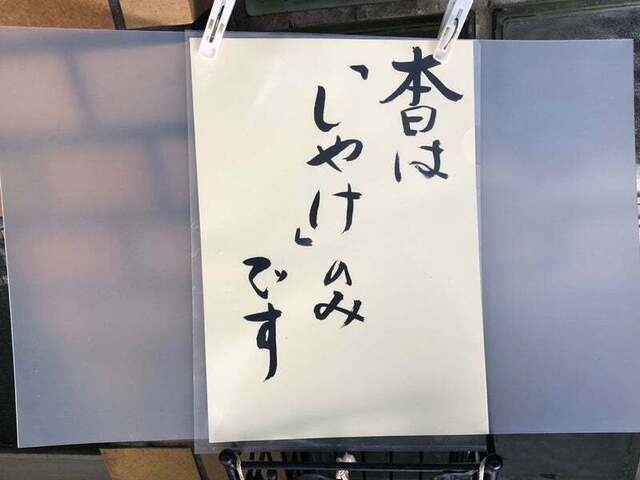 本日は
「しやけ」のみ
です